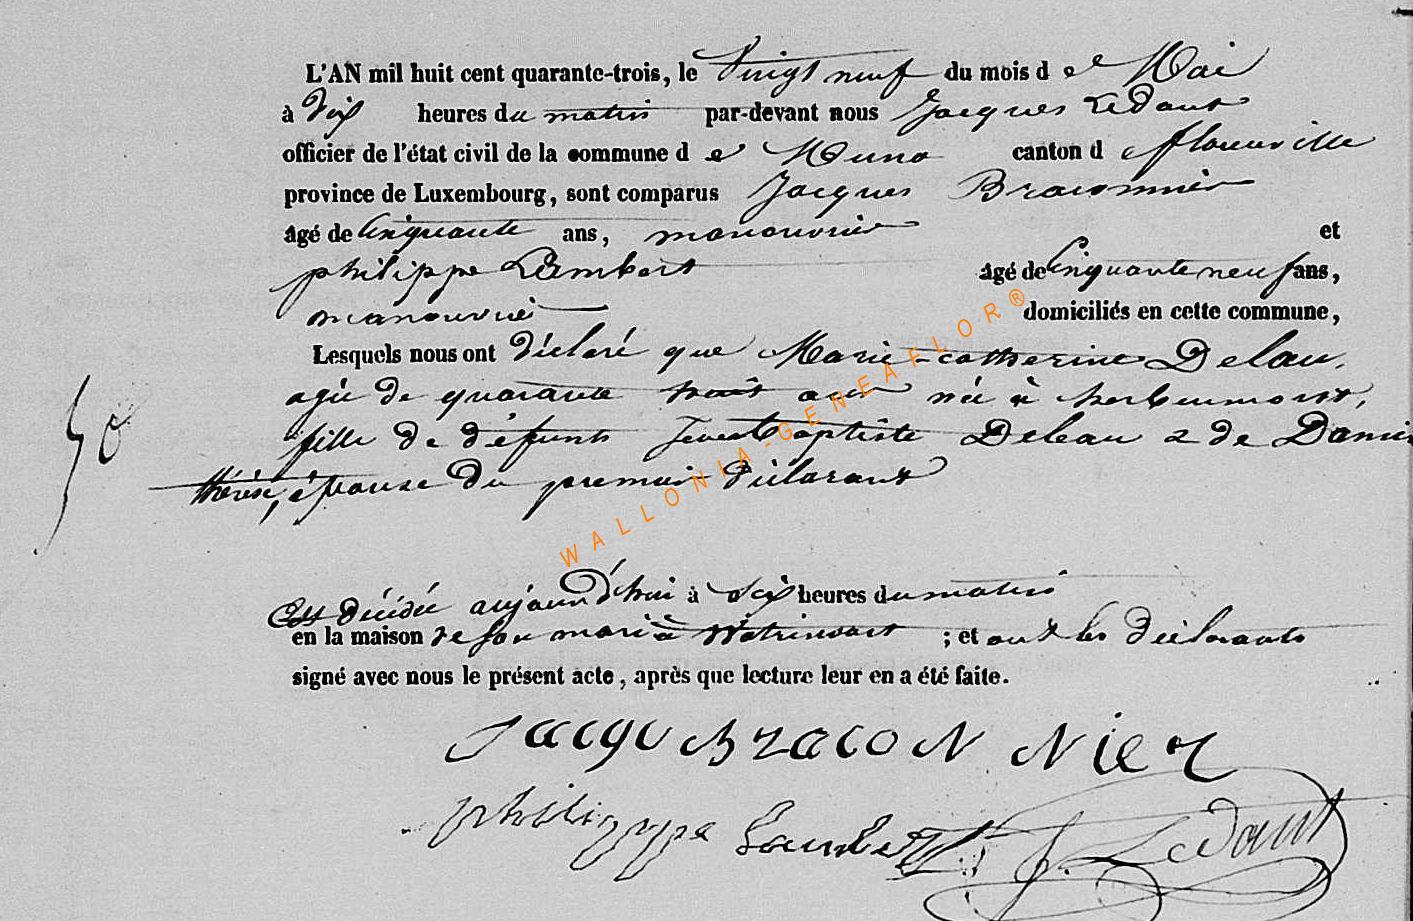 L'AN mil huit cent quarante-trois, le Vingt neuf du mois d e Mai
à dix heures du matin par-devant nous Jacques Ledant
officier de l'état civil de la commune d e Muno canton d e florenville
province de Luxembourg, sont comparus Jacques Braconnier
âgé de Cinquante ans, manouvrier et
philippe Lambert âgé de Cinquante neuf ans,
manouvrier domiciliés en cette commune,
Lesquels nous ont déclaré que Marie-catherine Delau,
agée de quarante huit ans née à herbeumont,
fille de défunts Jean Baptiste Deleau & de
thérèse, épouse du premier déclarant
50
Est décédée aujourd'hui à Six heures du matin
en la maison de son mari à Watrinsart ; et ont les déclarants
signé avec nous le présent acte, après que lecture leur en a été faite.
Jacque Braconnnier
philippe Lambert J. Ledant
WALLONIA-GENEAFLOR®